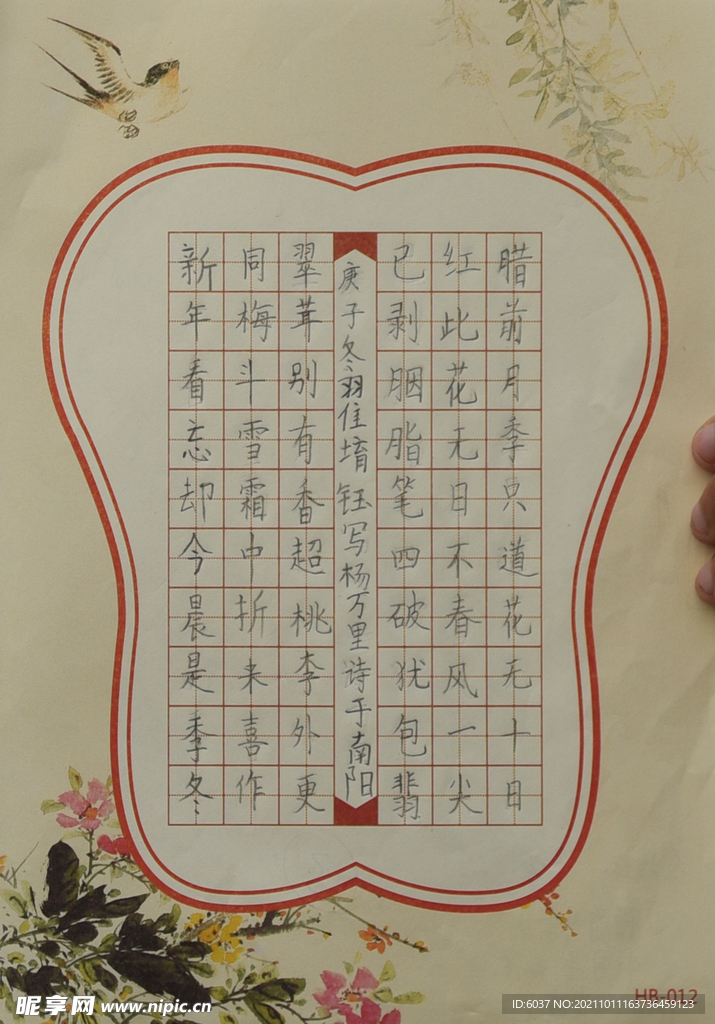 腊前月季只道花无十日
红此花无日不春风一尖
已剥胭脂笔四破犹包翡
庚子冬翟堉钰写杨万里诗于南阳
翠茸别有香超桃李外更
同梅斗雪霜中折来喜作
新年看忘却今晨是季冬
HB-012
昵享网 www.nipic.cn
ID:6037 NO:20211011163736459123